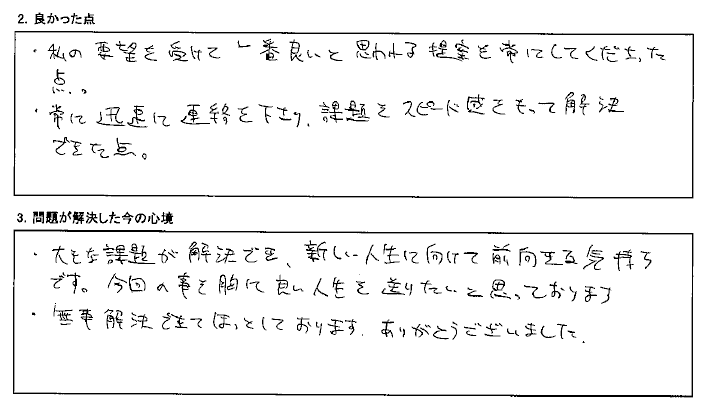 2. 良かった点
・私の要望を受けて一番良いと思われる提案を常にしてくださった
点。
・常に迅速に連絡を下さり、課題をスピード感をもって解決
できた点。
3. 問題が解決した今の心境
・大きな課題が解決でき、新しい人生に向けて前向きな気持ち
です。今回の事を胸に良い人生を送りたいと思っております
・無事解決できてほっとしております。ありがとうございました。